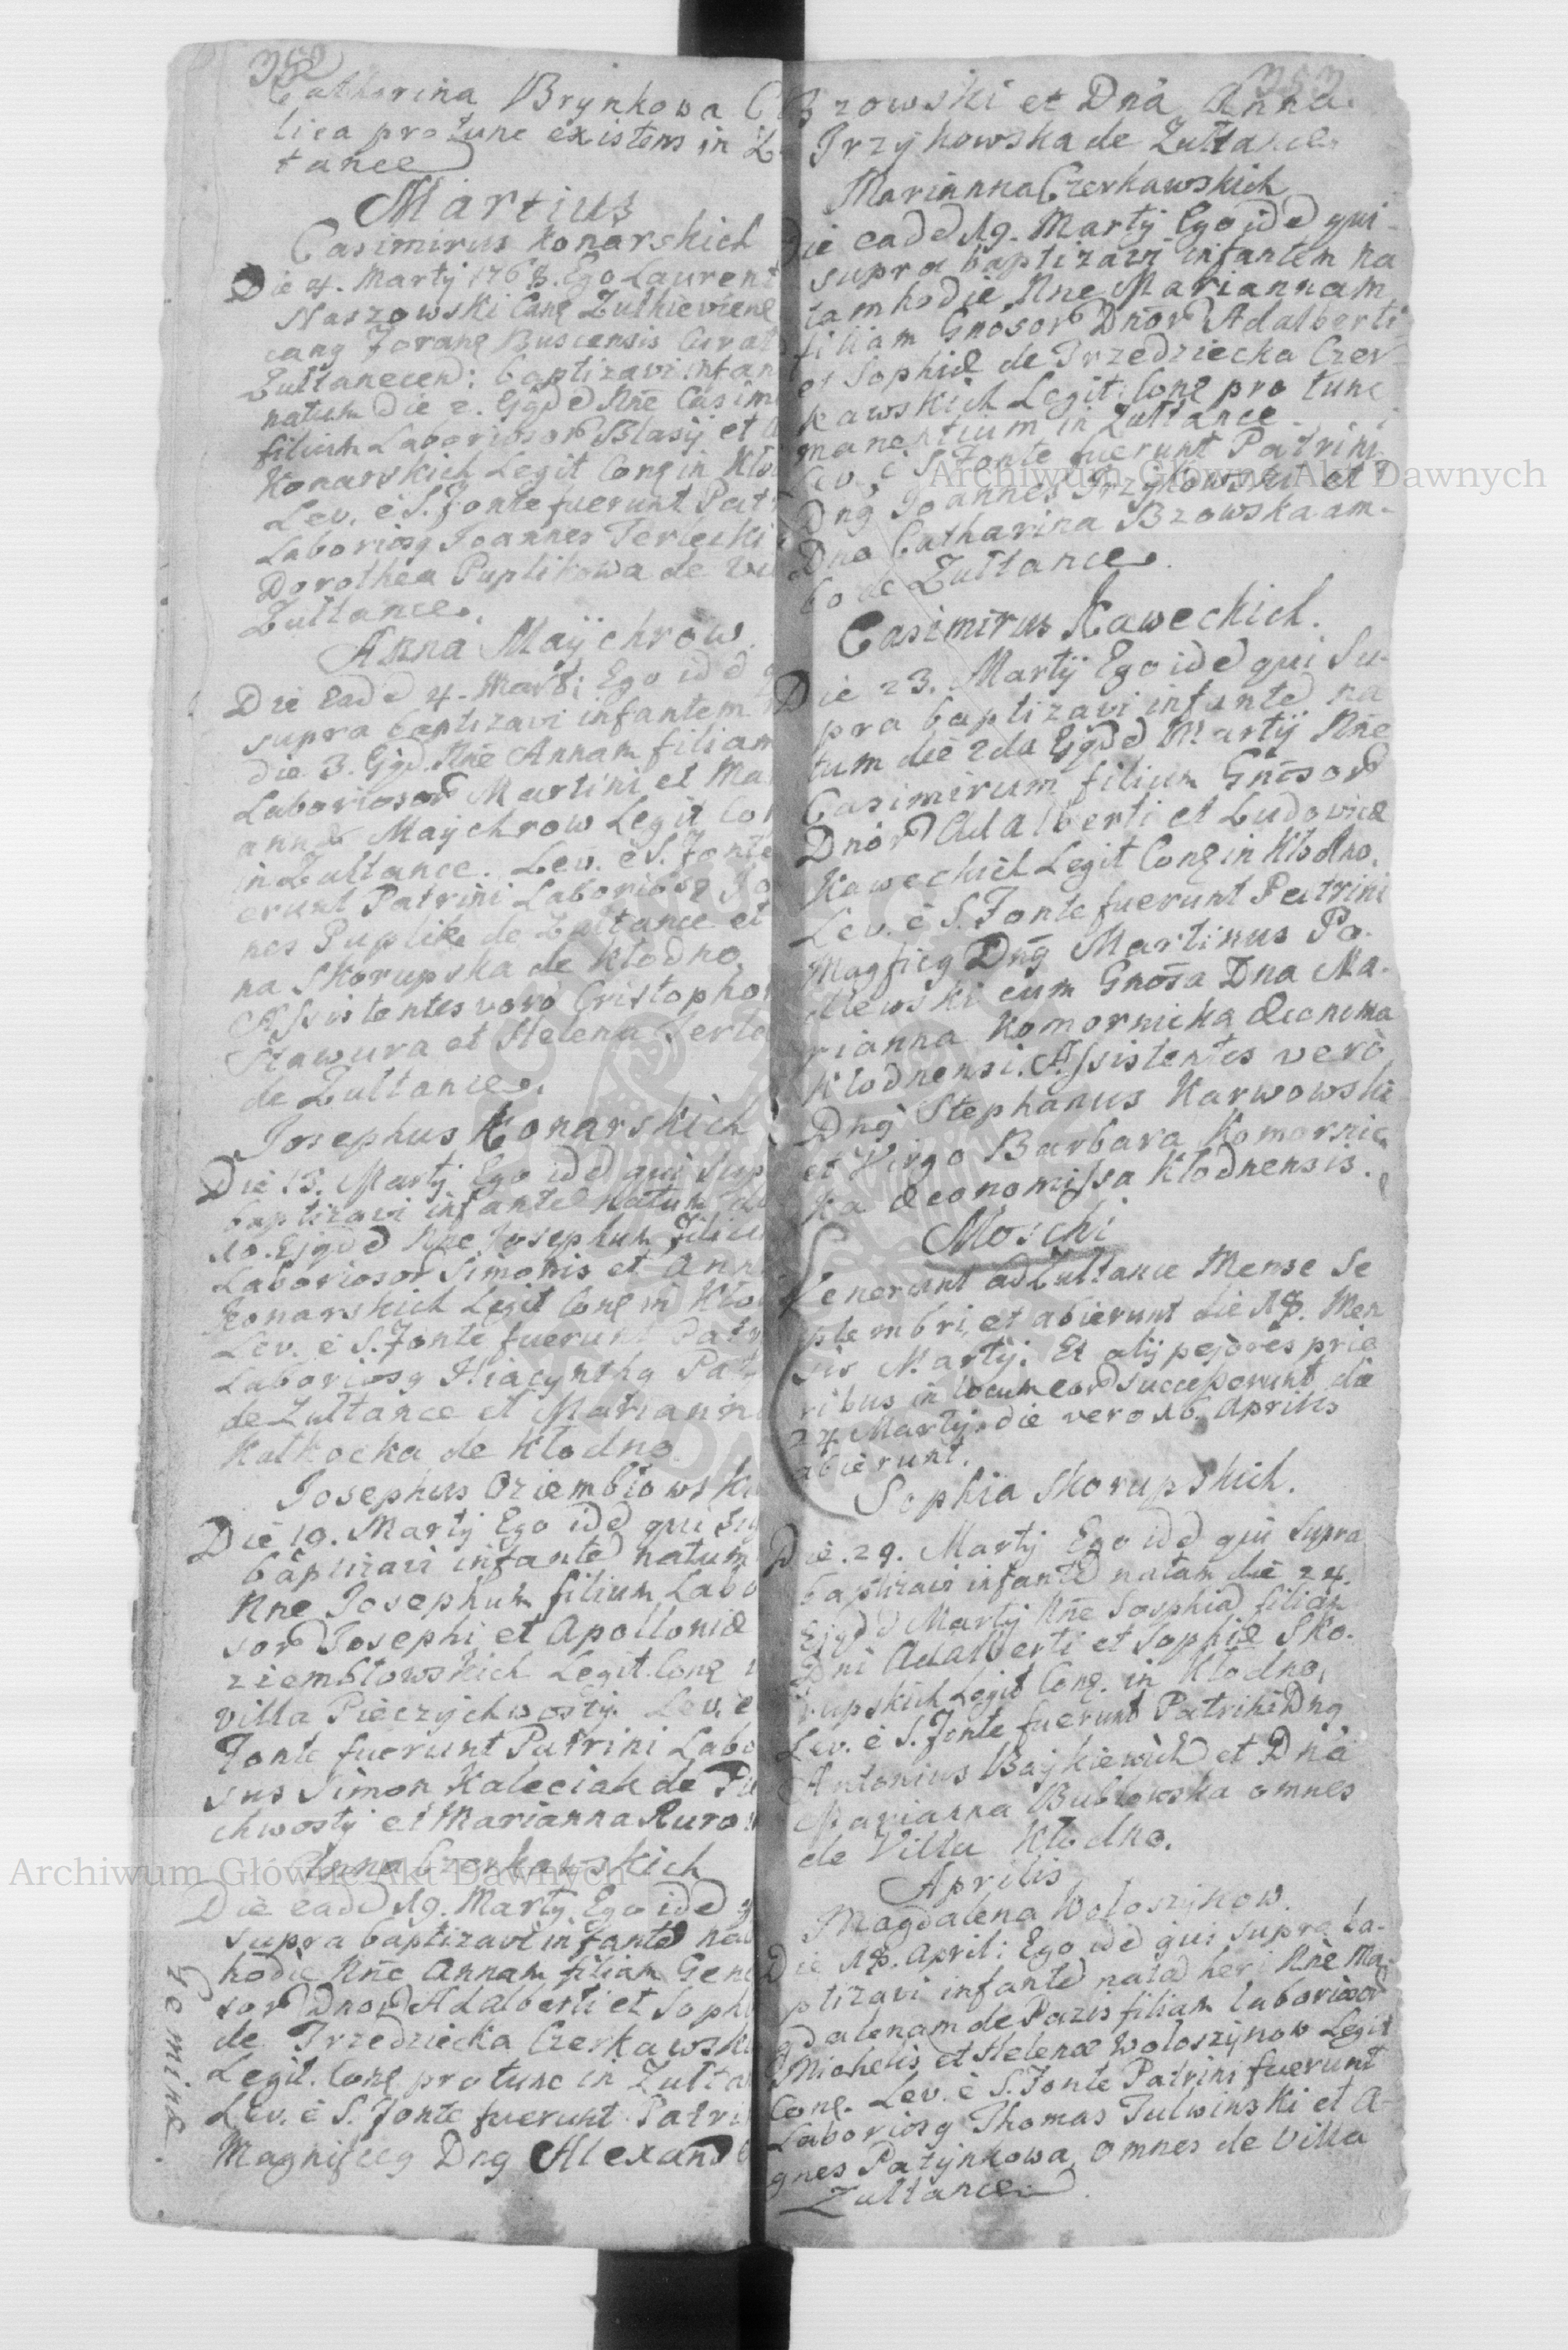 352
Catharina Brynkowa C
lica pro tunc existens in Z
tance
Martius
Casimirus Konarskich
Die 4. Martij 1768. Ego Laurent
Naszowski Cang Zulkieviene
cang Forane Buscensis Curat
Zultanecen: baptizavi infan
natum die 2. Ejqd Nne Casim
filium Laboriosor Blasij et A
Konarskich Legit Cong in Kło
Lev. è S. Fonte fuerunt Patr
Laboriosg Joannes Terlecki
Dorothea Puplikowa de Vi
Zultance.
Anna Maychrow
Die ead 4. Marti Ego id q
supra baptizavi infantem
die 3. Ejqd. Nne Annam filiam
Laboriosor Martini et Ma
annæ Maychrow Legit Con
in Zultance. Lev. è S. Fonte
erunt Patrini Laboriosg Jo
nes Puplik de Zultance et
na Skorupska de Kłodno.
Assistentes verò Cristophor
Stawura et Helena Terle
de Zultance.
Josephus Konarskich
Die 13. Martij Ego id qui sup
baptizavi infante natum di
10. Ejqd Nne Josephum filiu
Laboriosor Simonis et Ann
Konarskich Legit Cong in Kło
Lev. è S. Fonte fuerunt Patr
Laboriosg Hiacynthg Pat
de Zultance et Mariann
Kałkocka de Kłodno.
Josephus Oziembłowski
Die 19. Martij Ego id qui su
baptizavi infante natum
Nne Josephum filium Labo
sor Josephi et Apolloniæ
ziembłowskich Legit. Cong i
villa Pieczychwosty. Lev. è
Fonte fuerunt Patrini Labo
sus Simon Kaleciak de Pie
chwosty et Marianna Ruro
Anna Czerkawskich
Die ead 19. Martij Ego id q
supra baptizavi infante na
hodie Nne Annam filiam Gene
sor Dnor Adalberti et Soph
de Trzedziecka Czerkawski
Legit. Cong pro tunc in Zulta
Lev. è S. Fonte fuerunt Patri
Magnificg Dng Alexand
Geminæ.
353
Bzowski et Dna Anna
Trzykowska de Zultance.
Marianna Czerkawskich
Die ead 19. Martij Ego id qui
supra baptizavi infantem na
tam hodie Nne Mariannam
filiam Gnosor Dnor Adalberti
et Sophiæ de Trzedziecka Czer
kawskich Legit: Cong pro tunc
manentium in Zultance.
Lev. è S. Fonte fuerunt Patrini
Dng Joannes Trzykowski et
Dna Catharina Bzowska am-
bo de Zultance.
Casimirus Kaweckich.
Die 23. Martij Ego id qui Su-
pra baptizavi infante na
tum die 2da Ejqd Martij Nne
Casimirum filium Gnosor
Dnor Adalberti et Ludovicæ
Kaweckich Legit Cong in Kłodno.
Lev. è S. Fonte fuerunt Patrini
Magficg Dng Martinus Po-
lewski cum Gnosa Dna Ma-
rianna Komornicka Œconoma
Kłodnensi. Assistentes verò
Dng Stephanus Karwowski
et Virgo Barbara Komornic
ka œconomissa Kłodnensis.
Moschi
Venerunt ad Zultance Mense Se
ptembri, et abierunt die 18. Men
sis Martij. Et alij pejores prio
ribus in locum eor successerunt die
24 Martij. die vero 16. Aprilis
abierunt.
Sophia Skorupskich.
Die. 29. Martij Ego id qui supra
baptizavi infante natam die 24.
Ejqd Martij Nne Sophia filiam
Dni Adalberti et Sophiæ Sko-
rupskich Legit Cong. in Kłodno,
Lev. è S. Fonte fuerunt Patrini Dng
Antonius Baykiewicz et Dna
Marianna Bublewska omnes
de Villa Kłodno.
Aprilis
Magdalena Wołoszynow.
Die 18. April: Ego id qui supra ba-
ptizavi infante nata heri Nne Ma-
gdalenam de Pazis filiam laboriosor
Michelis et Helenæ Wołoszynow Legit
Cong. Lev. è S. Fonte Patrini fuerunt
Laboriosg Thomas Tulwinski et A-
gnes Patynkowa, omnes de Villa
Zultance.
Archiwum Główne Akt Dawnych
Archiwum Główne Akt Dawnych